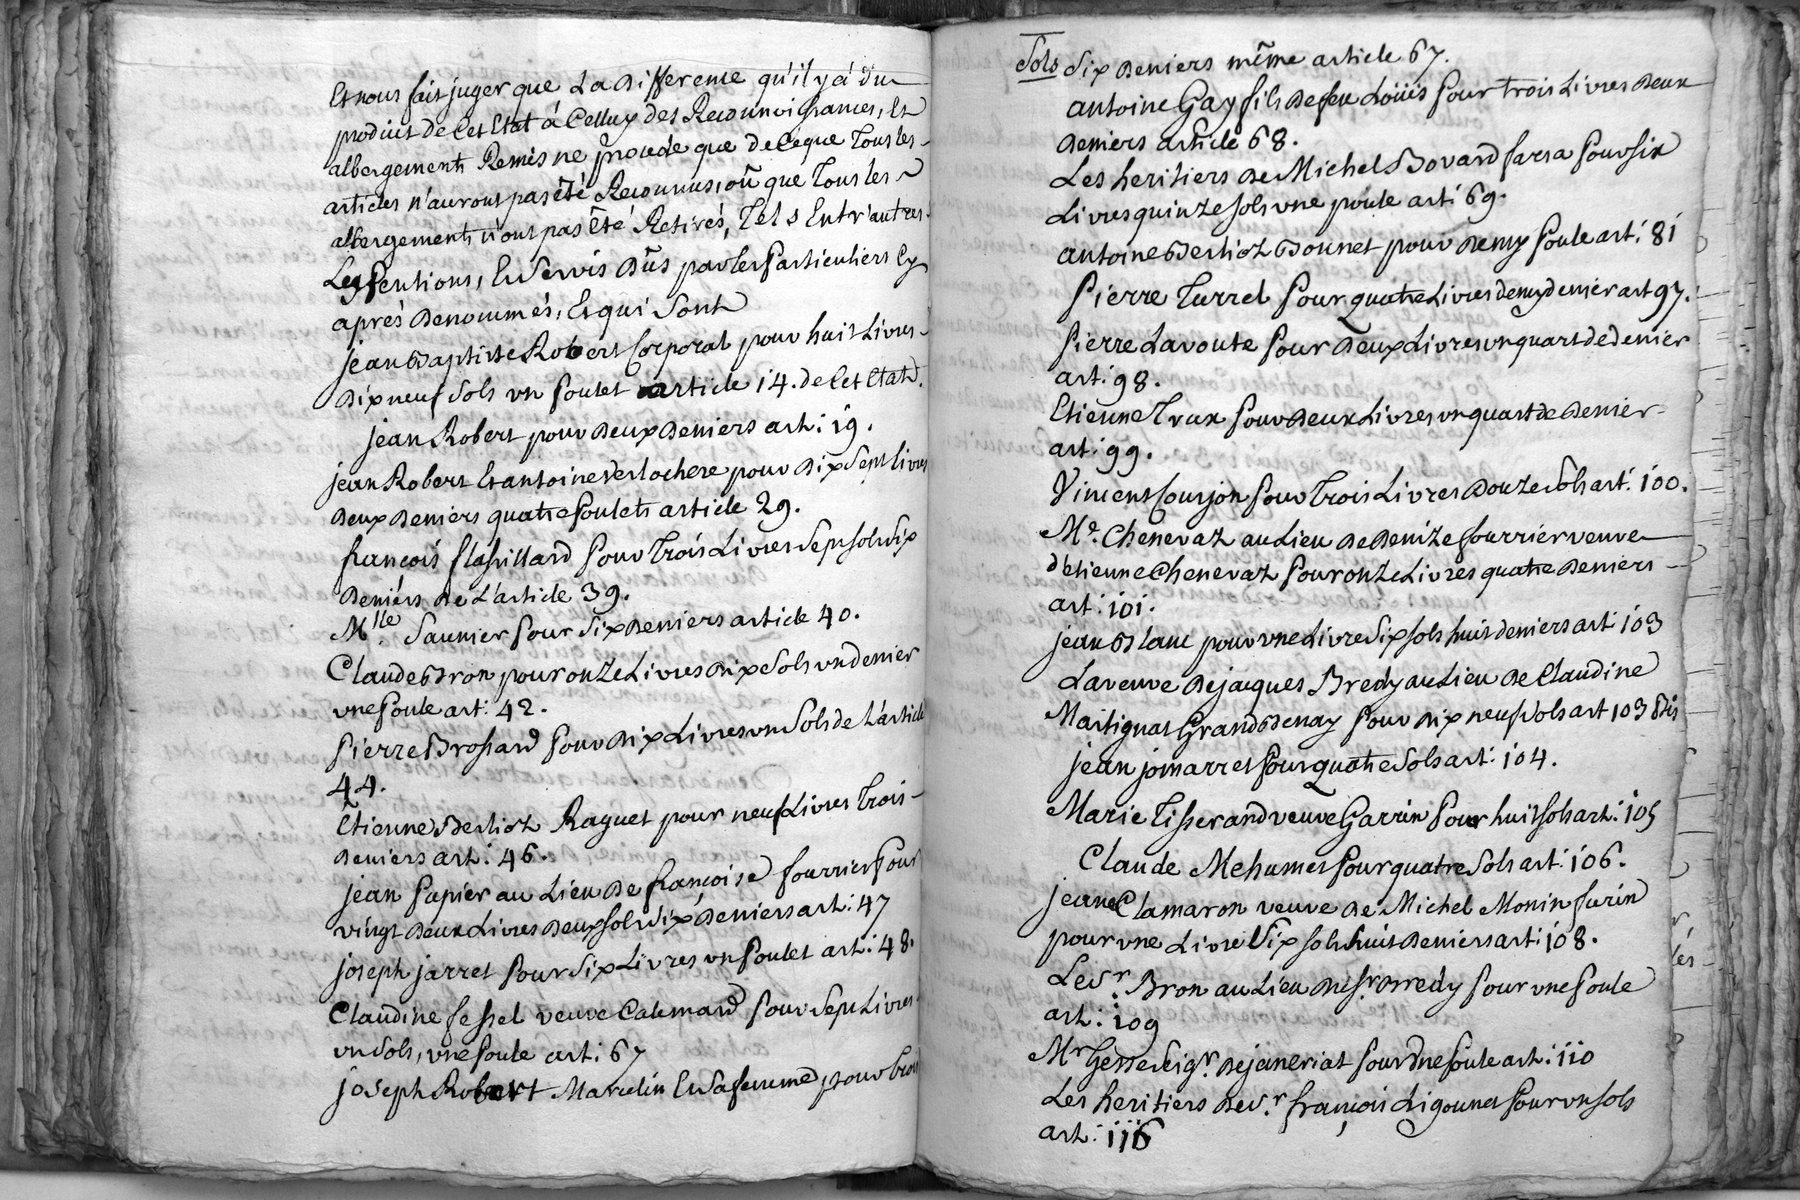 Et nous fait juger que La Difference qu'il y à du
produit de Cet Etat à Celluy des Reconnoissances, Et
albergements Remis ne procede que de Ceque Tous les
articles n'auront pas êté Reconnus, oû que Tous les
albergements n'ont pas êté Retirés, Tels Entr'autres
Les pentions, Et Servis dûs par les particuliers Cy
aprés Denommés, Et qui Sont
jean Baptiste Robert Corporat pour huit Livres
Dix neuf Sols un poulet article 14. de Cet Etat.
jean Robert pour Deux Deniers art: 19.
jean Robert Et antoine Derlochere pour Dix Sept livres
Deux Deniers quatre poulets article 29.
françois flashillard pour Trois Livres Sept sols Six
Deniérs De L'article 39.
Mlle Saunier pour Six Deniers article 40.
Claude Bron pour onze Livres Dix Sols un denier
une poule art: 42.
Pierre Brossard pour Dix Livres un Sols de L'article
44.
Etienne Berlioz Raguet pour neuf Livres Trois
Deniers art: 46.
jean papier au Lieu De françoise fourrier pour
vingt Deux Livres Deux sols Six Deniers art: 47
joseph jarret pour Six Livres un poulet art: 48.
Claudine fessel veuve Calemard pour Sept Livres
un Sols, une poule art: 67
joseph Robert Marcelin Et Sa femme pour trois
Sols Six Deniers même article 67.
antoine Gay fils De feu Loüis pour trois Livres Deux
Deniers article 68.
Les heritiers De Michel Bovard farsa pour six
Livres quinze sols une poule art: 69.
antoine Berlioz Bonnet pour Demy poule art: 81
Pierre Turrel pour quatre Livres demy denier art 97.
Pierre Lavoute pour Deux Livres un quart de denier
art: 98.
Etienne Trux pour Deux Livres un quart de Denier
art: 99.
Vincent Coujon pour Trois Livres Douze Sols art: 100.
Me. Chenevaz au Lieu De Denize fourrier veuve
d'etienne Chenevaz pour onze Livres quatre Deniers
art: 101.
jean Blanc pour une Livre Six sols huit deniers art: 103
La veuve De jacques Bredy au Lieu De Claudine
Martignat Grand Benay pour Dix neuf Sols art 103 Bis
jean jomarret pour quatre Sols art: 104.
Marie Tisserand veuve Garrin pour huit sols art: 105
Claude Mehumet pour quatre Sols art: 106.
jeane Clamaron veuve De Michel Monin furin
pour une Livre Six sols huit Deniers art: 108.
Le Sr. Bron au Lieu De Sr Bredy pour une poule
art: 109
Mr Gesse Seigr. De janeriat pour une poule art: 110
Les heritiers De Sr. françois Ligonnet pour un sols
art: 116